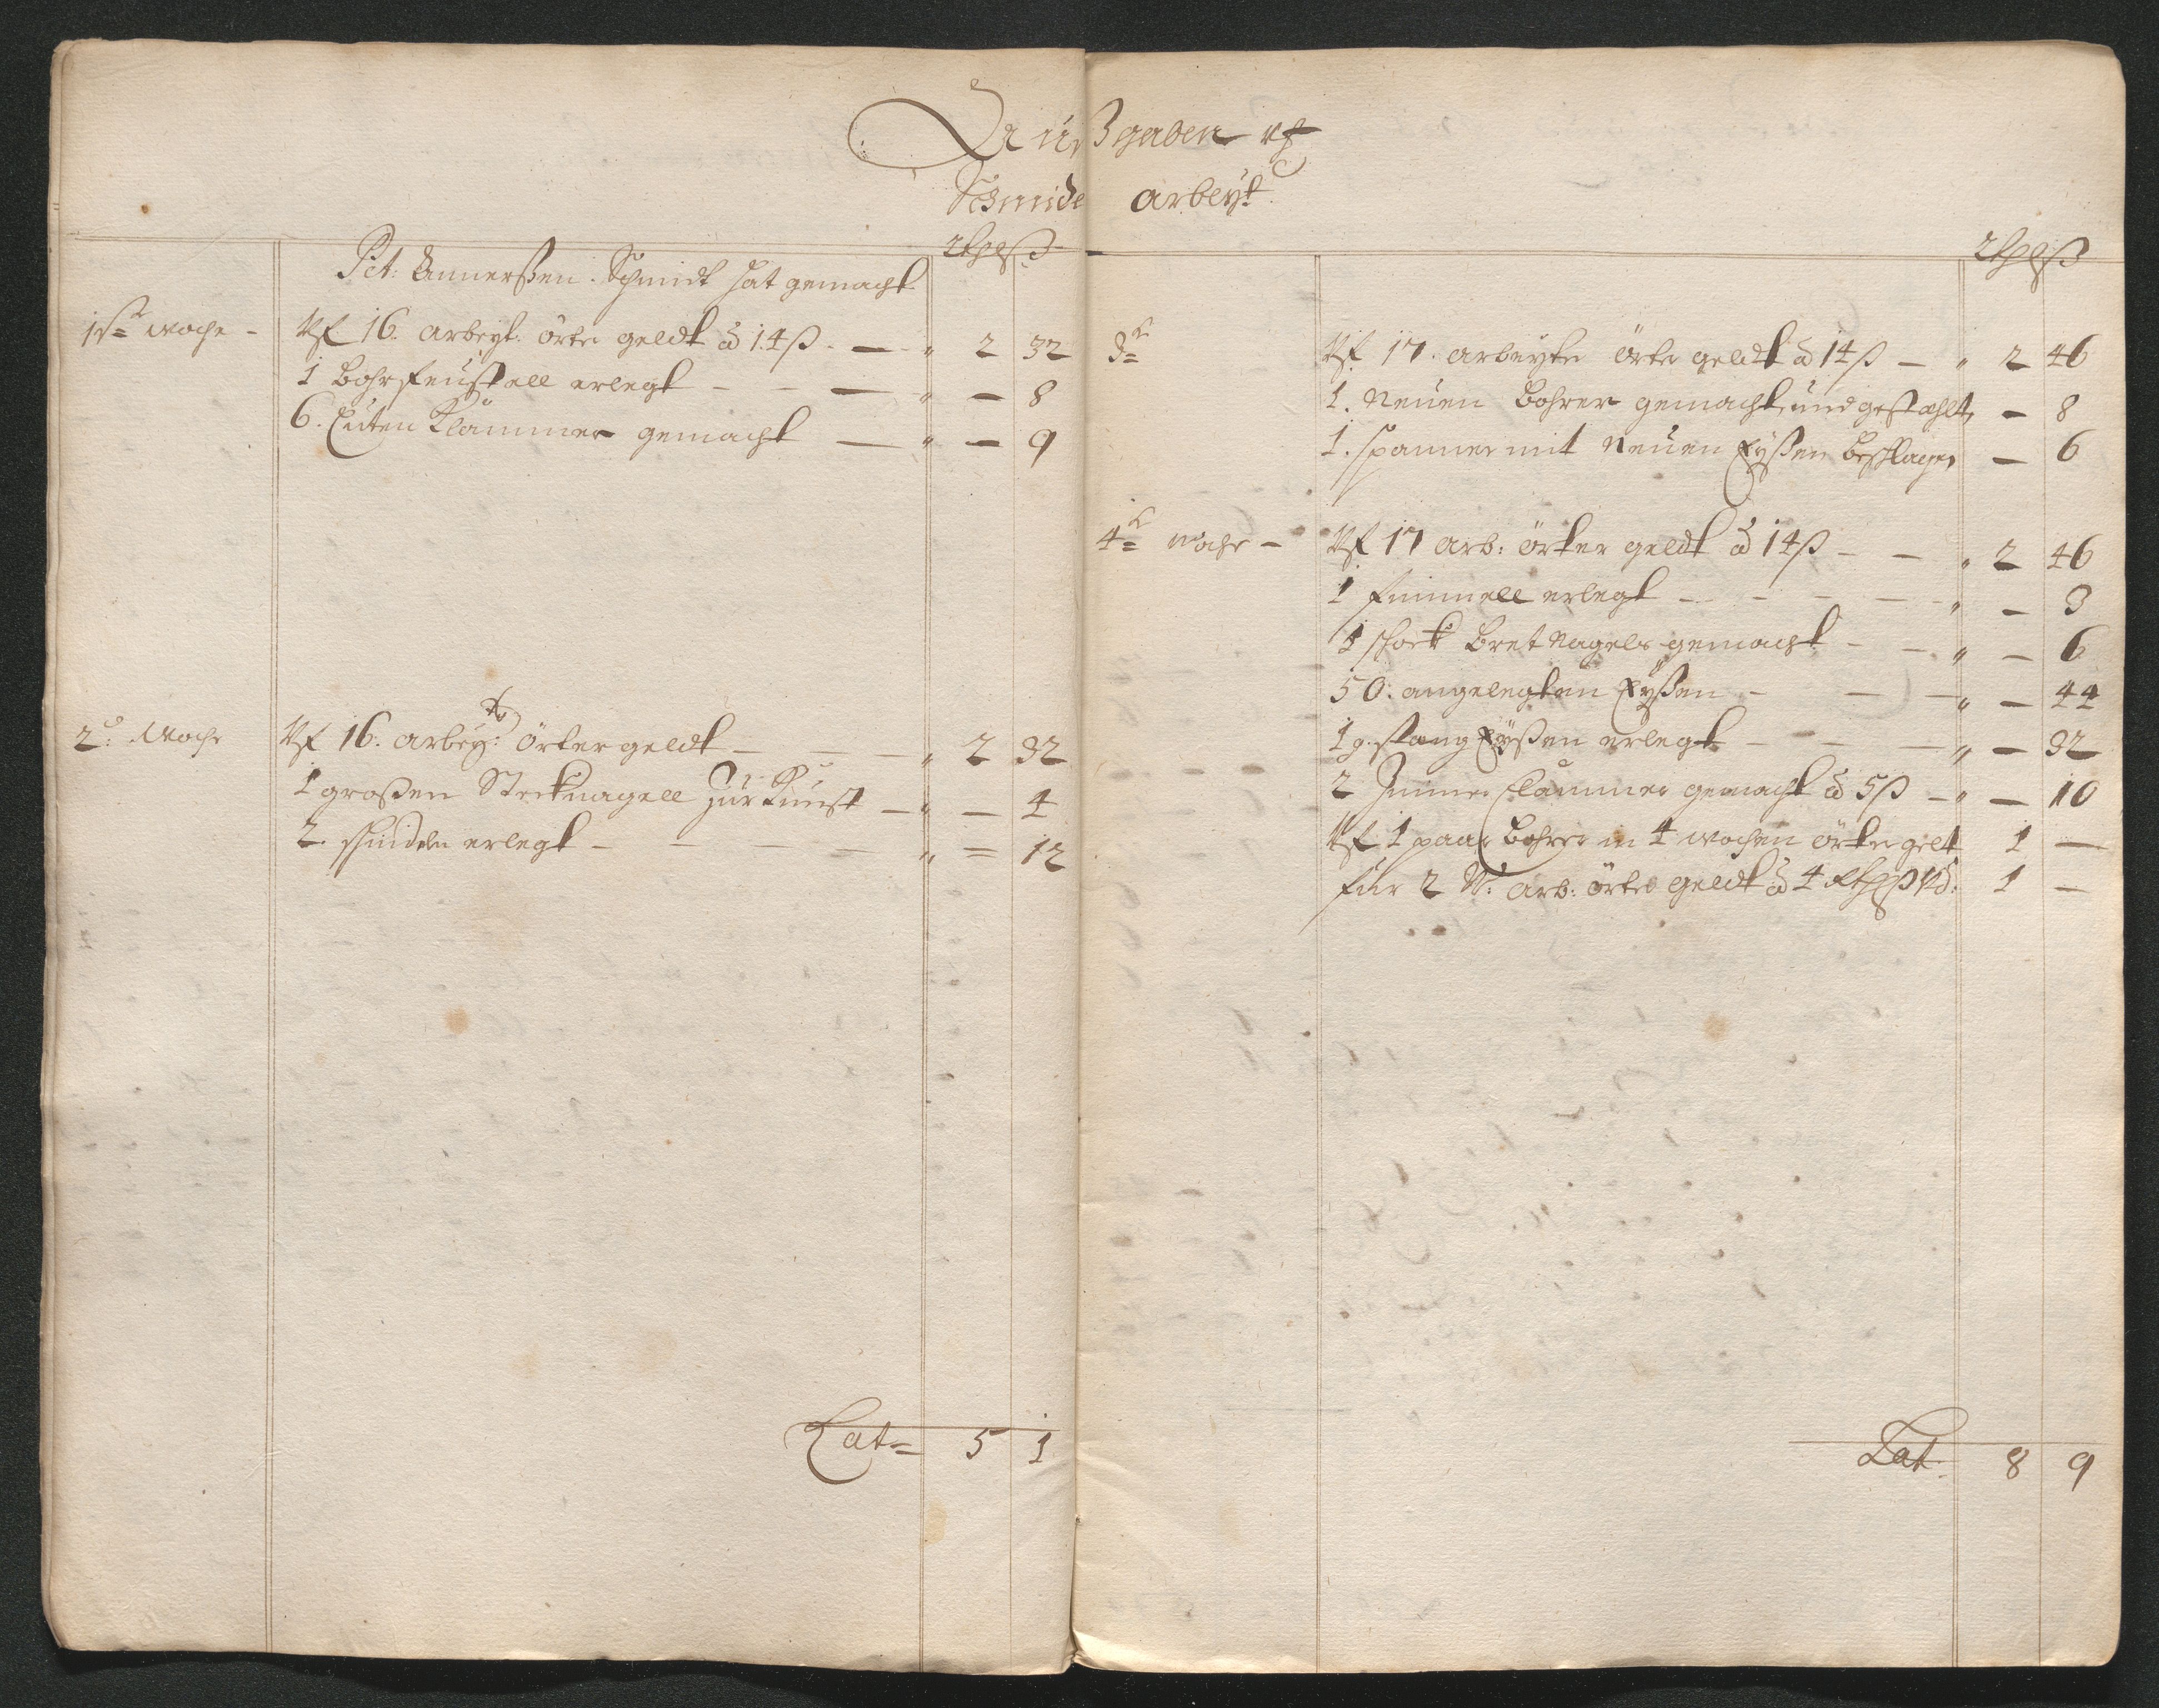 Außgaben vf
Schmide arbeyt
Rthl ß
Pet: Annerßen Schmidt hat gemacht
1ste woche - Vf 16. arbeyt. örter geldt à 14 ß - " 2 32
1 Bohrfeustell erlegt - " - 8
6. Klammer gemacht - " - 9
2e: Woche Vf 16. arbeyt: örter geldt - " 2 32
1 großen Stecknagell zur Kunst - " - 4
2. erlegt - " = 12
Lat= 5 1
Rthl ß
3te Vf 17. arbeyts örter geldt à 14 ß - " 2 46
1. Neuen Bohrer gemacht und gestahlt - 8
1. spanner mit Neuen Eyßen beschlagen - 6
4te woche - Vf 17 arb: örter geldt à 14 ß - " 2 46
1 fimmell erlegt - " - 3
1 schock bret Nagels gemacht - " - 6
50. angelegten Eyßen - " - 44
1 g. stang Eyßen erlegt - " - 32
2 Zimmer Clammer gemacht à 5 ß - " - 10
Vf 1 paar Bohrer in 4 wochen örter gelt 1 -
für 2 N: arb: örter geldt à 4 1 -
Lat 8 9